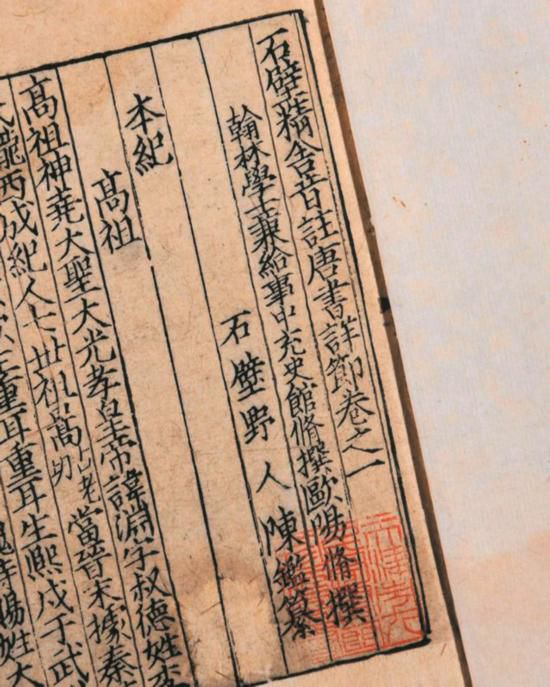 石壁精舍音註唐書詳節卷之一
翰林學士兼給事中充史館脩撰歐陽脩撰
石壁野人陳鑑纂
本紀
髙祖
髙祖神堯大聖大光孝皇帝諱淵字叔德姓李
氏隴西成紀人七丗祖暠古老切當晉末據秦
重耳重耳生熙戍于武